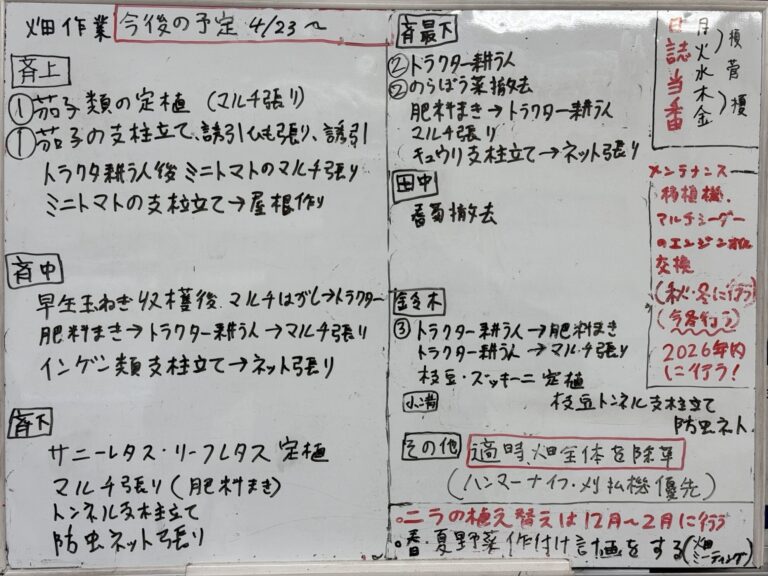 畑作業 今後の予定 4/23〜
斉上
①茄子類の定植 (マルチ張り)
①茄子の支柱立て、誘引ひも張り、誘引
トラクタ耕うん後 ミニトマトのマルチ張り
ミニトマトの支柱立て→屋根作り
斉中
早生玉ねぎ収穫後 マルチはがし→トラクター
肥料まき→トラクター耕うん→マルチ張り
インゲン類支柱立て→ネット張り
斉下
サニーレタス・リーフレタス 定植
マルチ張り(肥料まき)
トンネル支柱立て
防虫ネット張り
斉最下
②トラクター耕うん
②のらぼう菜撤去
肥料まき→トラクター耕うん
マルチ張り
キュウリ支柱立て→ネット張り
田中
春菊撤去
鈴木
③トラクター耕うん→肥料まき
トラクター耕うん→マルチ張り
枝豆・ズッキーニ 定植
枝豆トンネル支柱立て
防虫ネット
その他 適時、畑全体を除草
(ハンマーナイフ・刈払機優先)
○ニラの植え替えは12月〜2月に行う
○春・夏野菜作付け計画をする(畑ミーティング)
日誌当番
月火水木金
榎 菅 榎
メンテナンス
移植機、
マルチシーダー
のエンジン
交換
(秋・冬に行う)
(今冬行う)
2026年内
に行う!